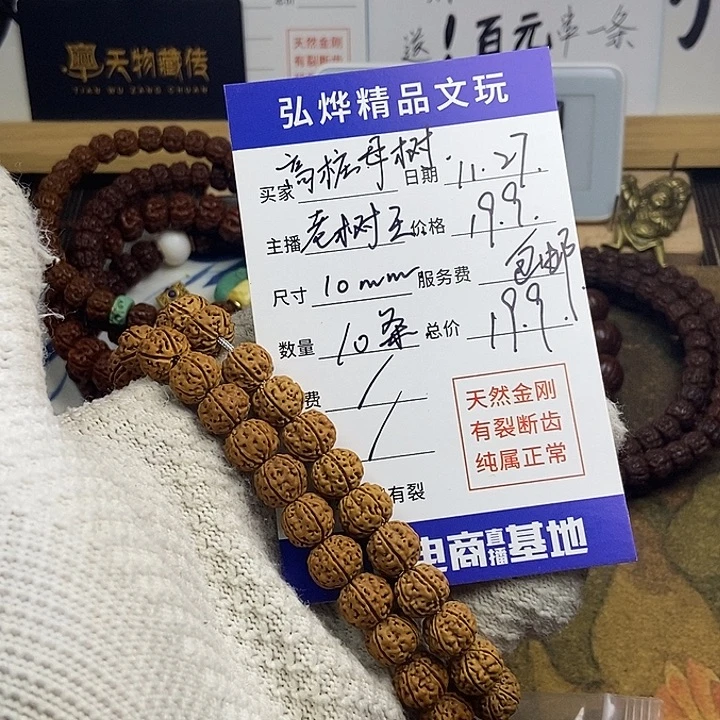 天物藏传
TIAN WU ZANG CHUAN
天然金刚
有裂断齿
送！百元串一条
弘烨精品文玩
买家 高桩母树 日期 11.27.
主播 老树王 价格 19.9.
尺寸 10mm 服务费 包邮
数量 10条 总价 19.9.
费 /
/
有裂
天然金刚
有裂断齿
纯属正常
电商直播基地